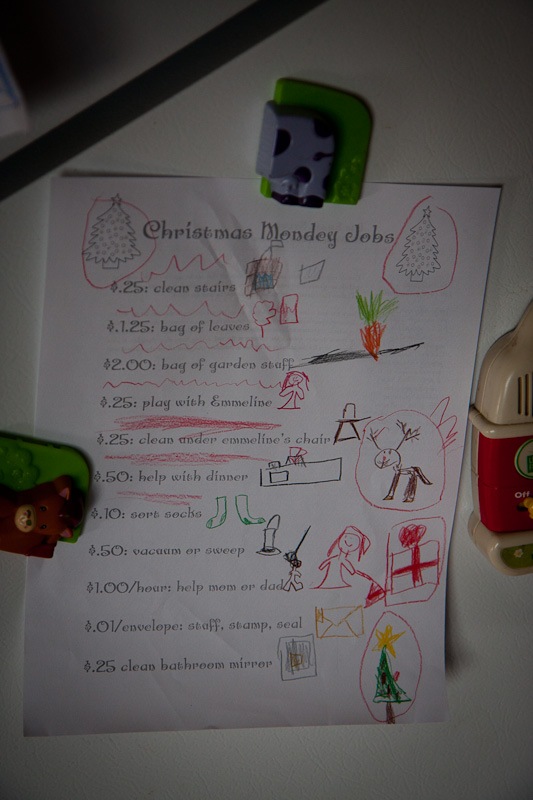 Christmas Mondey Jobs
$.25: clean stairs
$.1.25: bag of leaves
$2.00: bag of garden stuff
$.25: play with Emmeline
$.25: clean under emmeline's chair
$.50: help with dinner
$.10: sort socks
$.50: vacuum or sweep
$1.00/hour: help mom or dad
$.01/envelope: stuff, stamp, seal
$.25 clean bathroom mirror
Off